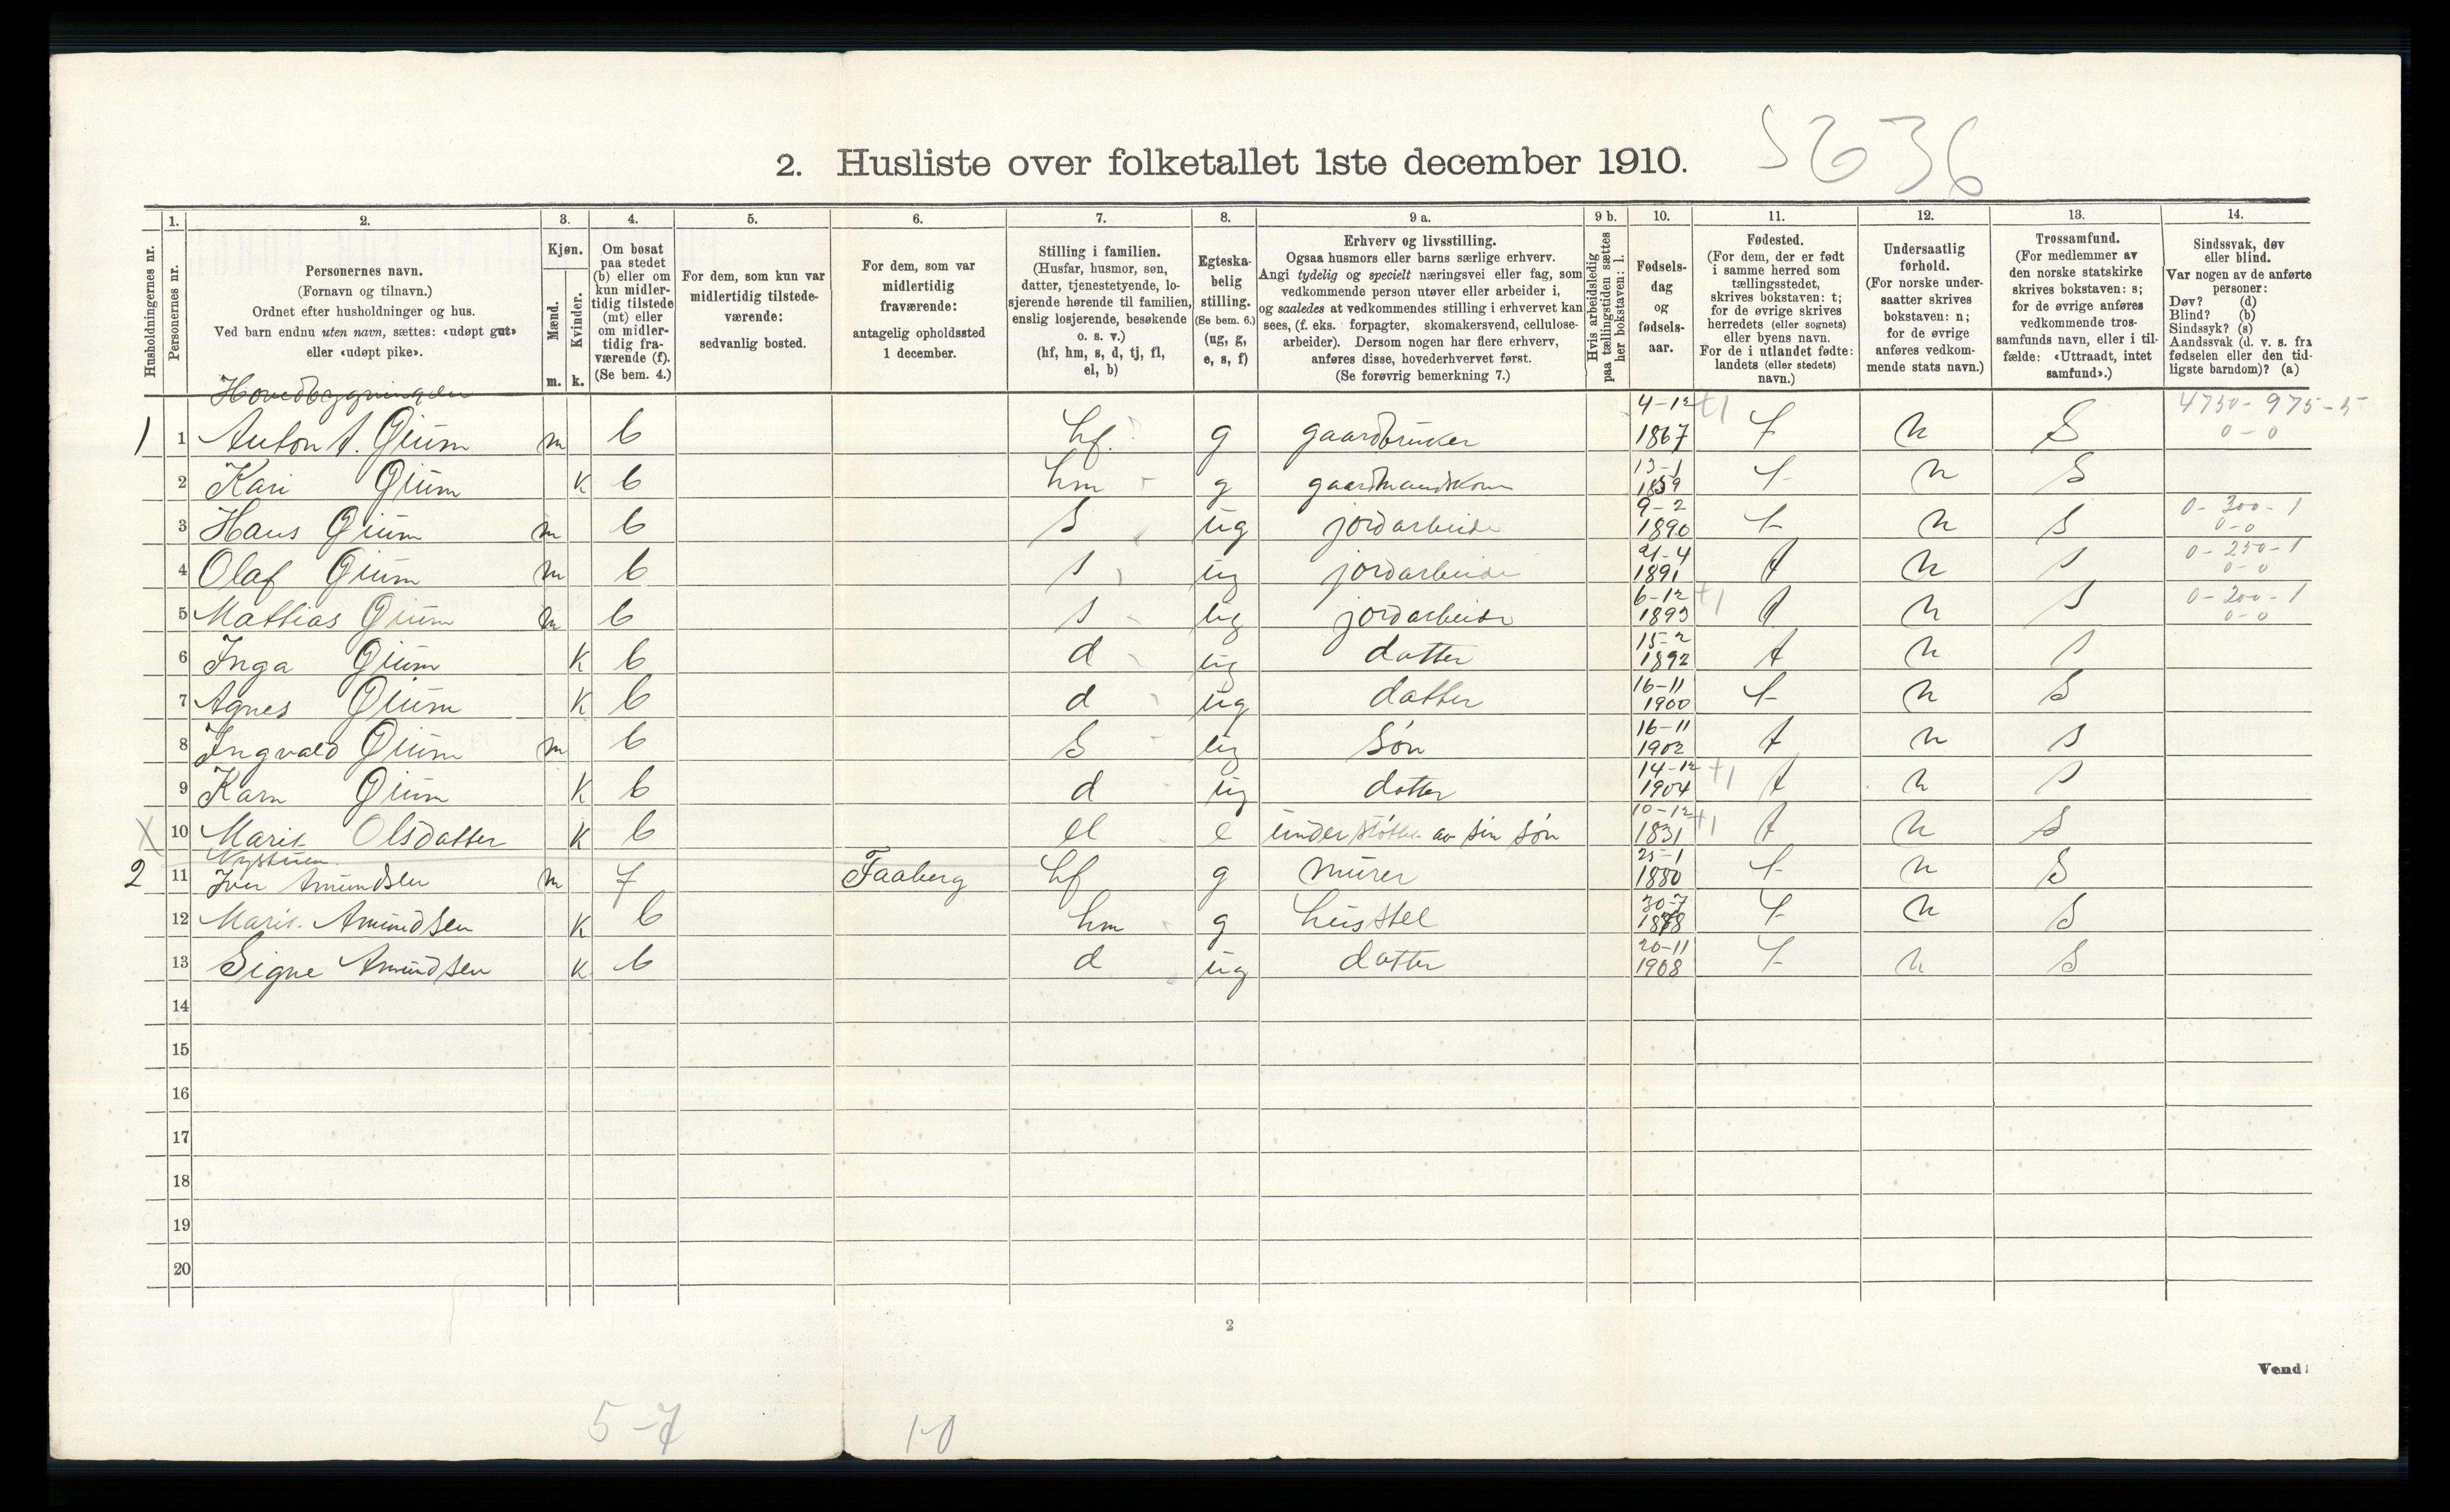 5636
2. Husliste over folketallet 1ste december 1910.
Husholdningernes nr.
1.
Personernes nr.
2.
Personernes navn.
(Fornavn og tilnavn.)
Ordnet efter husholdninger og hus.
Ved barn endnu uten navn, sættes: «udøpt gut»
eller «udøpt pike».
3.
Kjøn.
Mænd.
Kvinder.
m. k.
4.
Om bosat
paa stedet
(b) eller om
kun midler-
tidig tilstede
(mt) eller
om midler-
tidig fra-
værende (f).
(Se bem. 4.)
5.
For dem, som kun var
midlertidig tilstede-
værende:
sedvanlig bosted.
6.
For dem, som var
midlertidig
fraværende:
antagelig opholdssted
1 december.
7.
Stilling i familien.
(Husfar, husmor, søn,
datter, tjenestetyende, lo-
sjerende hørende til familien,
enslig losjerende, besøkende
o. s. v.)
(hf, hm, s, d, tj, fl,
el, b)
8.
Egteska-
belig
stilling.
(Se bem. 6.)
(ug, g,
e, s, f)
9 a.
Erhverv og livsstilling.
Ogsaa husmors eller barns særlige erhverv.
Angi tydelig og specielt næringsvei eller fag, som
vedkommende person utøver eller arbeider i,
og saaledes at vedkommendes stilling i erhvervet kan
sees, (f. eks. forpagter, skomakersvend, cellulose-
arbeider). Dersom nogen har flere erhverv,
anføres disse, hovederhvervet først.
(Se forøvrig bemerkning 7.)
9 b.
Hvis arbeidsledig
paa tællingstiden sættes
her bokstaven: l.
10.
Fødsels-
dag
og
fødsels-
aar.
11.
Fødested.
(For dem, der er født
i samme herred som
tællingsstedet,
skrives bokstaven: t;
for de øvrige skrives
herredets (eller sognets)
eller byens navn.
For de i utlandet fødte:
landets (eller stedets)
navn.)
12.
Undersaatlig
forhold.
(For norske under-
saatter skrives
bokstaven: n;
for de øvrige
anføres vedkom-
mende stats navn.)
13.
Trossamfund.
(For medlemmer av
den norske statskirke
skrives bokstaven: s;
for de øvrige anføres
vedkommende tros-
samfunds navn, eller i til-
fælde: «Uttraadt, intet
samfund».)
14.
Sindssvak, døv
eller blind.
Var nogen av de anførte
personer:
Døv? (d)
Blind? (b)
Sindssyk? (s)
Aandssvak (d. v. s. fra
fødselen eller den tid-
ligste barndom)? (a)
Hovedbygningen
1 1 Anton A. Gium m b hf. g gaardbruker 4-12 1867 +1 t n S 4750-975-5 0-0
2 Kari Gium k b hm g gaardmandskone 13-1 1859 t n S
3 Hans Gium m b s ug jordarbeide 9-2 1890 t n S 0-300-1 0-0
4 Olaf Gium m b s ug jordarbeide 21-4 1891 t n s 0-250-1 0-0
5 Mathias Gium m b s ug jordarbeide 6-12 1893 +1 t n s 0-200-1 0-0
6 Inga Gium k b d ug datter 15-2 1892 t n s
7 Agnes Gium k b d ug datter 16-11 1900 t n S
8 Ingvald Gium m b s ug søn 16-11 1902 t n s
9 Karn Gium k b d ug datter 14-12 1904 +1 t n s
X 10 Marit Olsdatter k b el e understøttes av sin søn 10-12 1831 +1 t n S
Nystuen
2 11 Iver Amundsen m f Faaberg hf g murer 25-1 1880 t n S
12 Marit Amundsen k b hm g husstel 30-7 1878 t n S
13 Signe Amundsen k b d ug datter 20-11 1908 t n S
14
15
16
17
18
19
20
2
Vend!
5-7
1-0